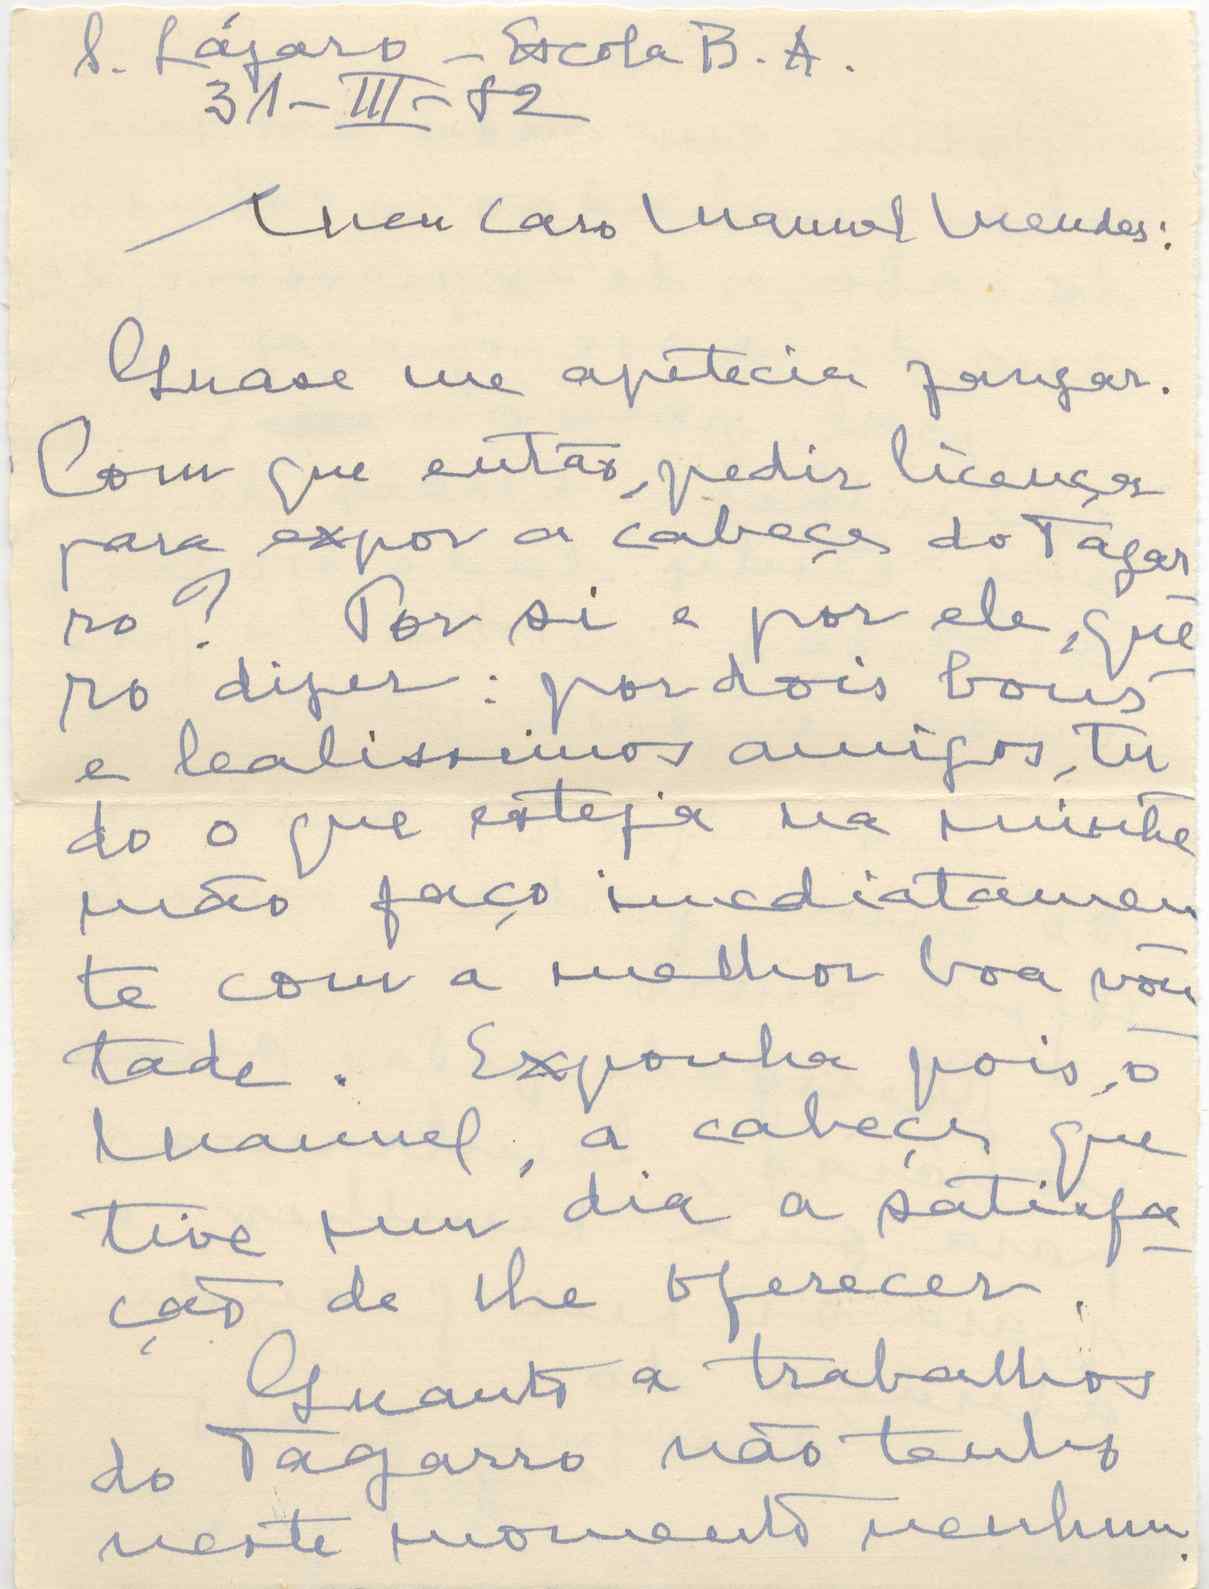 S. Lázaro – Escola B. A.
31–III–52
Meu Caro Manuel Mendes:
Quase me apetecia zangar.
Com que então, pedir licença
para expor a cabeça do Tagar
ro? Por si e por ele, que
ro dizer: por dois bons
e lealissimos amigos, tu
do o que esteja na minha
mão faço imediatamen
te com a melhor boa von
tade. Exponha pois, ó
Manuel, a cabeça que
tive um dia a satisfa
ção de lhe oferecer.
Quanto a trabalhos
do Tagarro não tenho
neste momento nenhum.